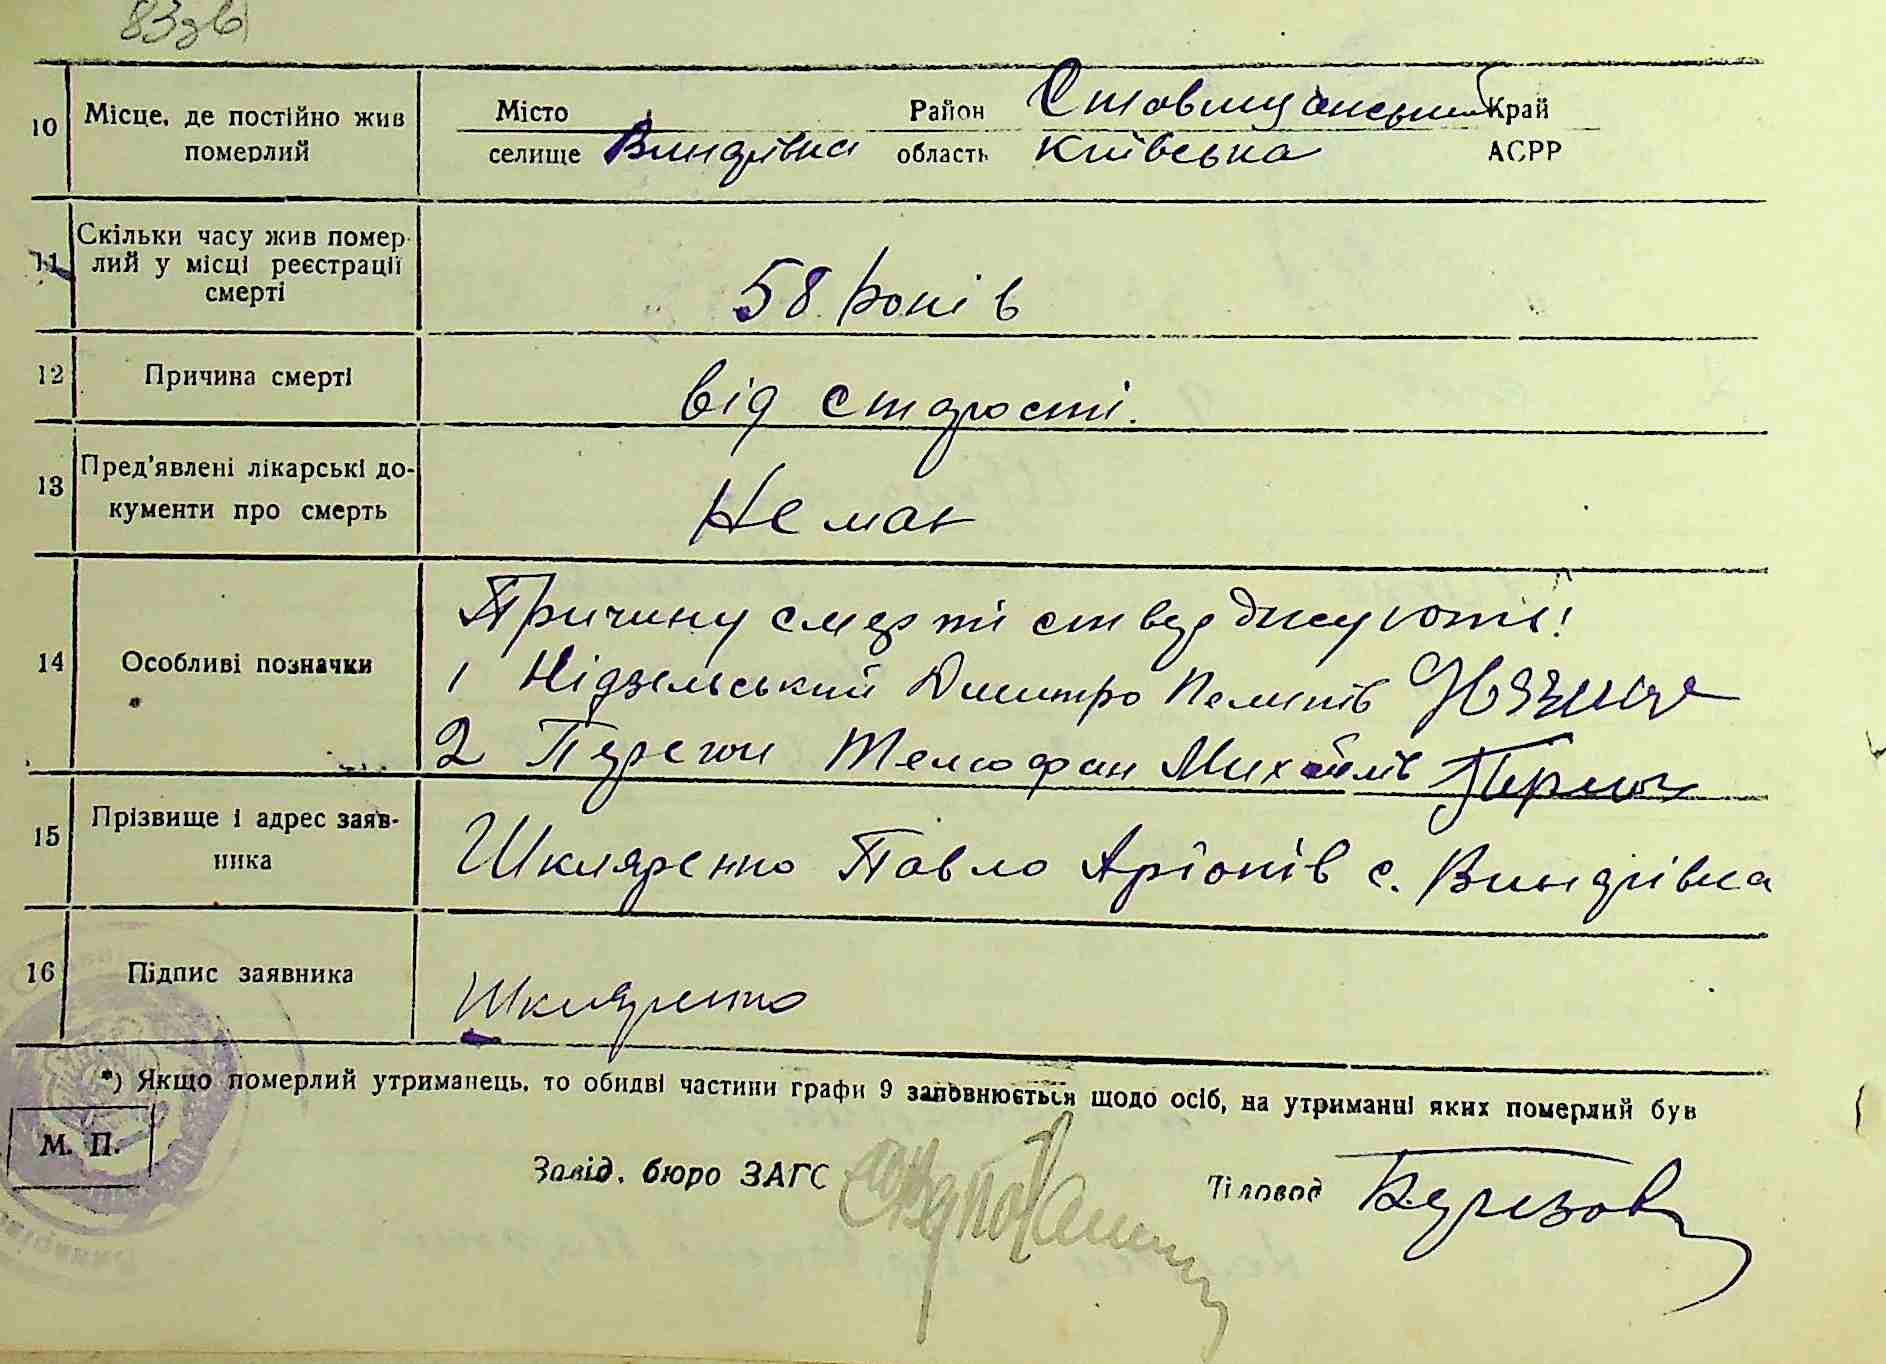 83зв
10 Місце, де постійно жив померлий Місто Район Ставищанський Край
селище Винарівка область Київська АСРР
11 Скільки часу жив помер-
лий у місці реєстрації
смерті
58 років
12 Причина смерті від старости.
13 Пред'явлені лікарські до-
кументи про смерть
Немає
Причину смерти стверджують!
14 Особливі позначки
1 Нідзельський Дмитро Пелипів
2 Перегон Телюфан Михайлів
15 Прізвище і адрес заяв-
ника
Шкляренко Павло Аріонів с. Винарівка
16 Підпис заявника Шкляренко
*) Якщо померлий утриманець, то обидві частини графи 9 заповнюється щодо осіб, на утриманні яких померлий був
М. П.
Завід. бюро ЗАГС Діловод Березов